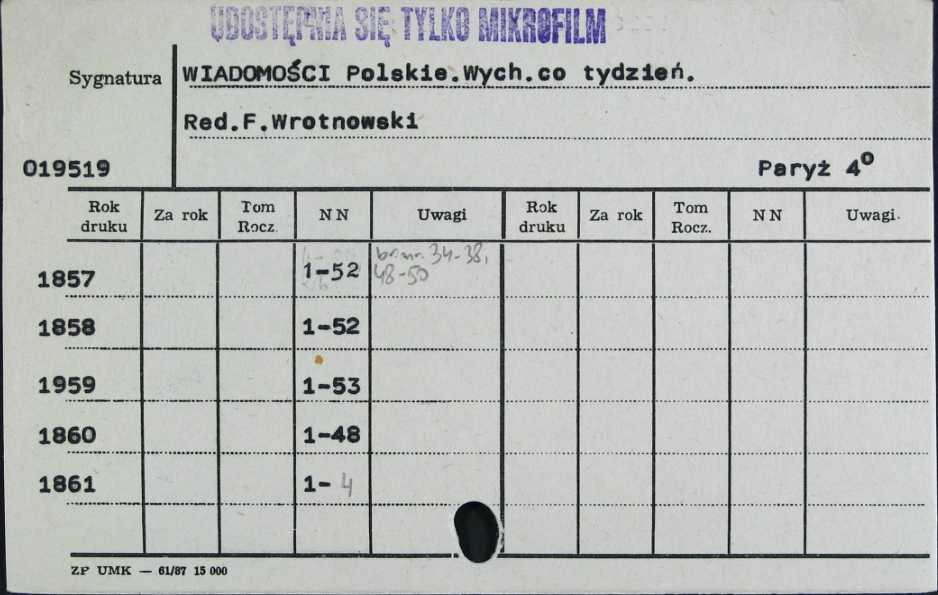 UDOSTĘPNIA SIĘ TYLKO MIKROFILM
Sygnatura WIADOMOŚCI Polskie.Wych.co tydzień.
Red.F.Wrotnowski
019519 Paryż 4º
Rok druku Za rok Tom Rocz. NN Uwagi Rok druku Za rok Tom Rocz. NN Uwagi
1857 1-52 34-38, 48-50
1858 1-52
1959 1-53
1860 1-48
1861 1- 4
ZP UMK — 61/87 15 000